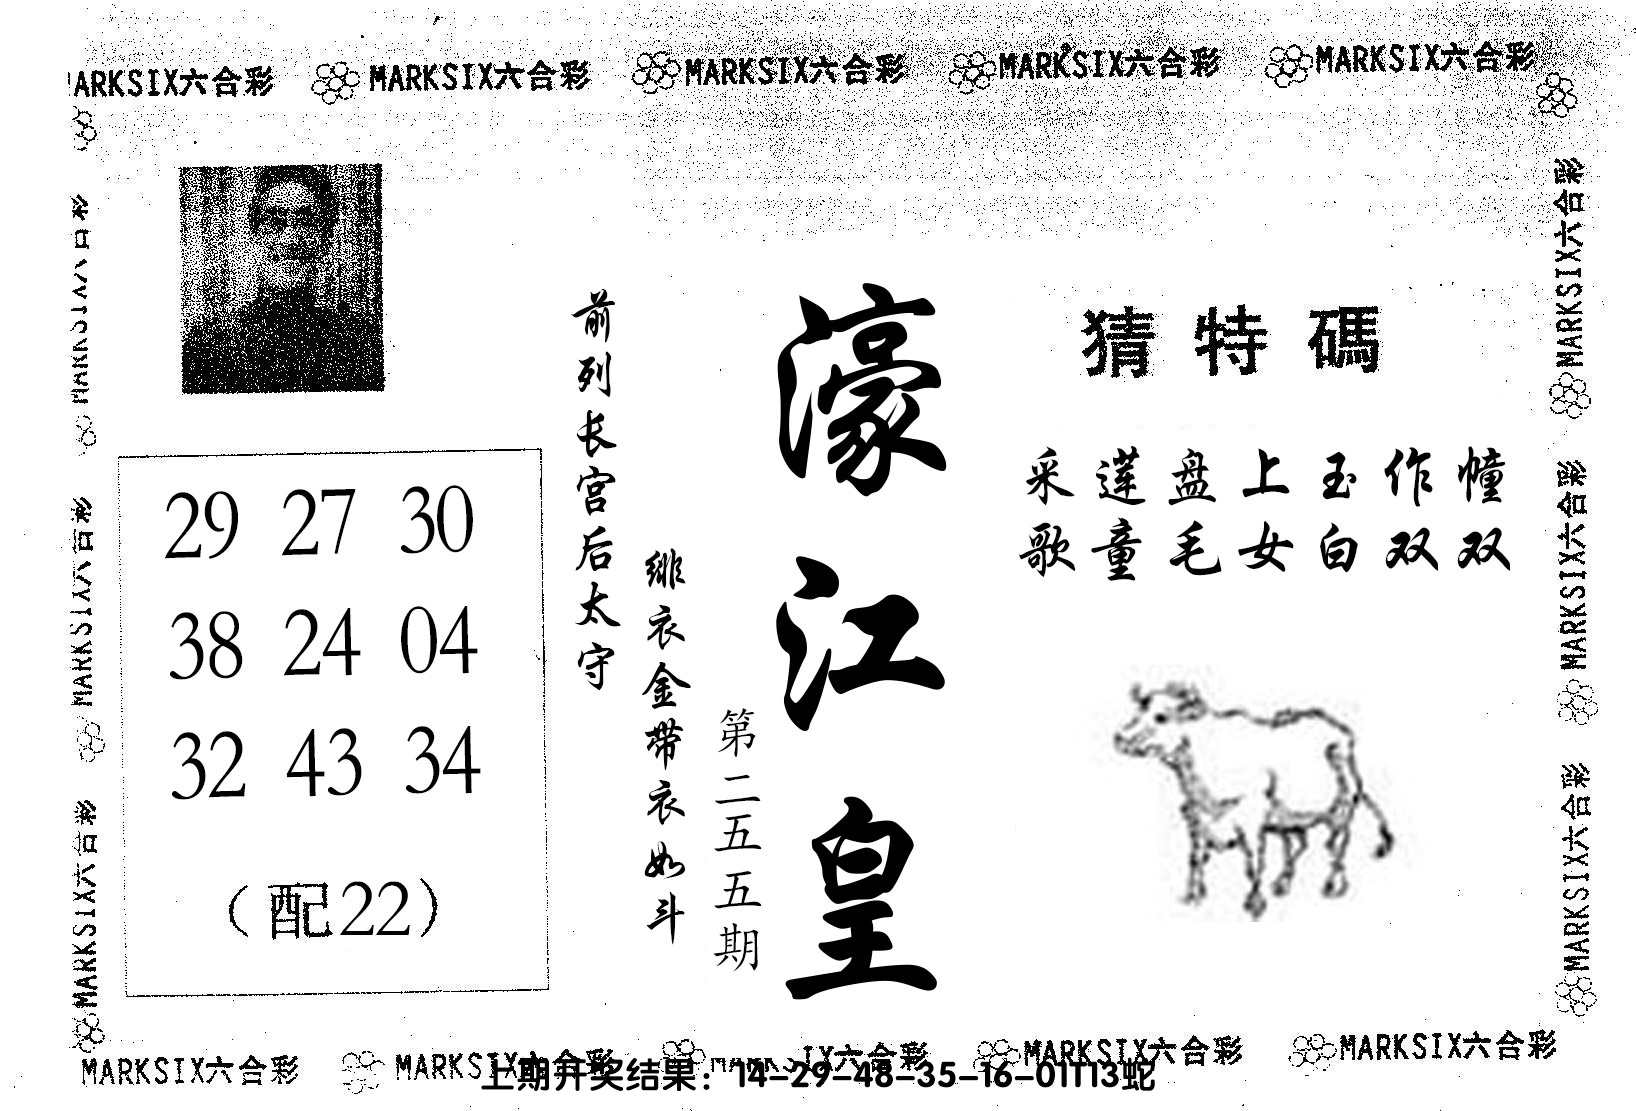 MARKSIX六合彩 MARKSIX六合彩 MARKSIX六合彩 MARKSIX六合彩 MARKSIX六合彩
猜特碼
采莲盘上玉作幢
歌童毛女白双双
濠江皇
第二五五期
前列长宫后太守
绯衣金带衣如斗
29 27 30
38 24 04
32 43 34
（配22）
MARKSIX六合彩
MARKSIX六合彩
MARKSIX六合彩
MARKSIX六合彩
MARKSIX六合彩
MARKSIX六合彩
MARKSIX六合彩 MARKSIX六合彩 MARKSIX六合彩 MARKSIX六合彩 MARKSIX六合彩
上期开奖结果：14-29-48-35-16-01T13蛇